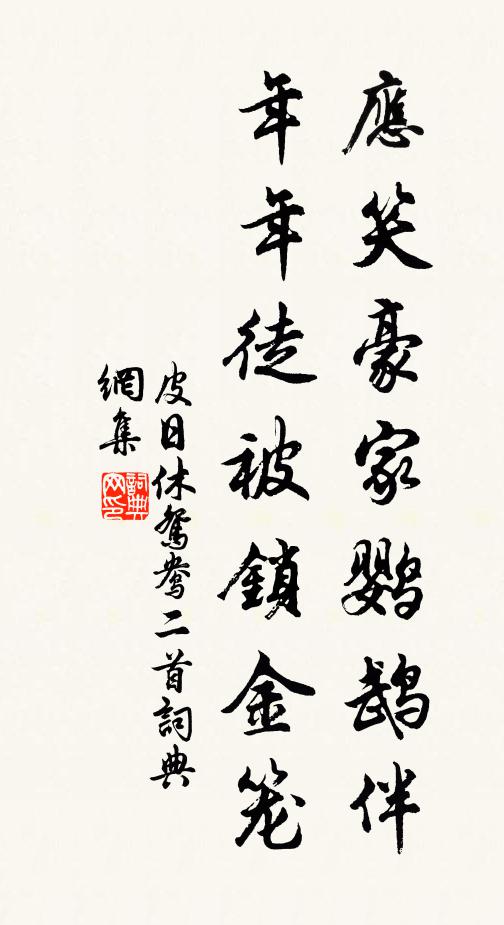 應笑豪家鸚鵡伴
年年徒被鎖金笼
皮日休鴛鴦二首詞典
網集
詞典
网印